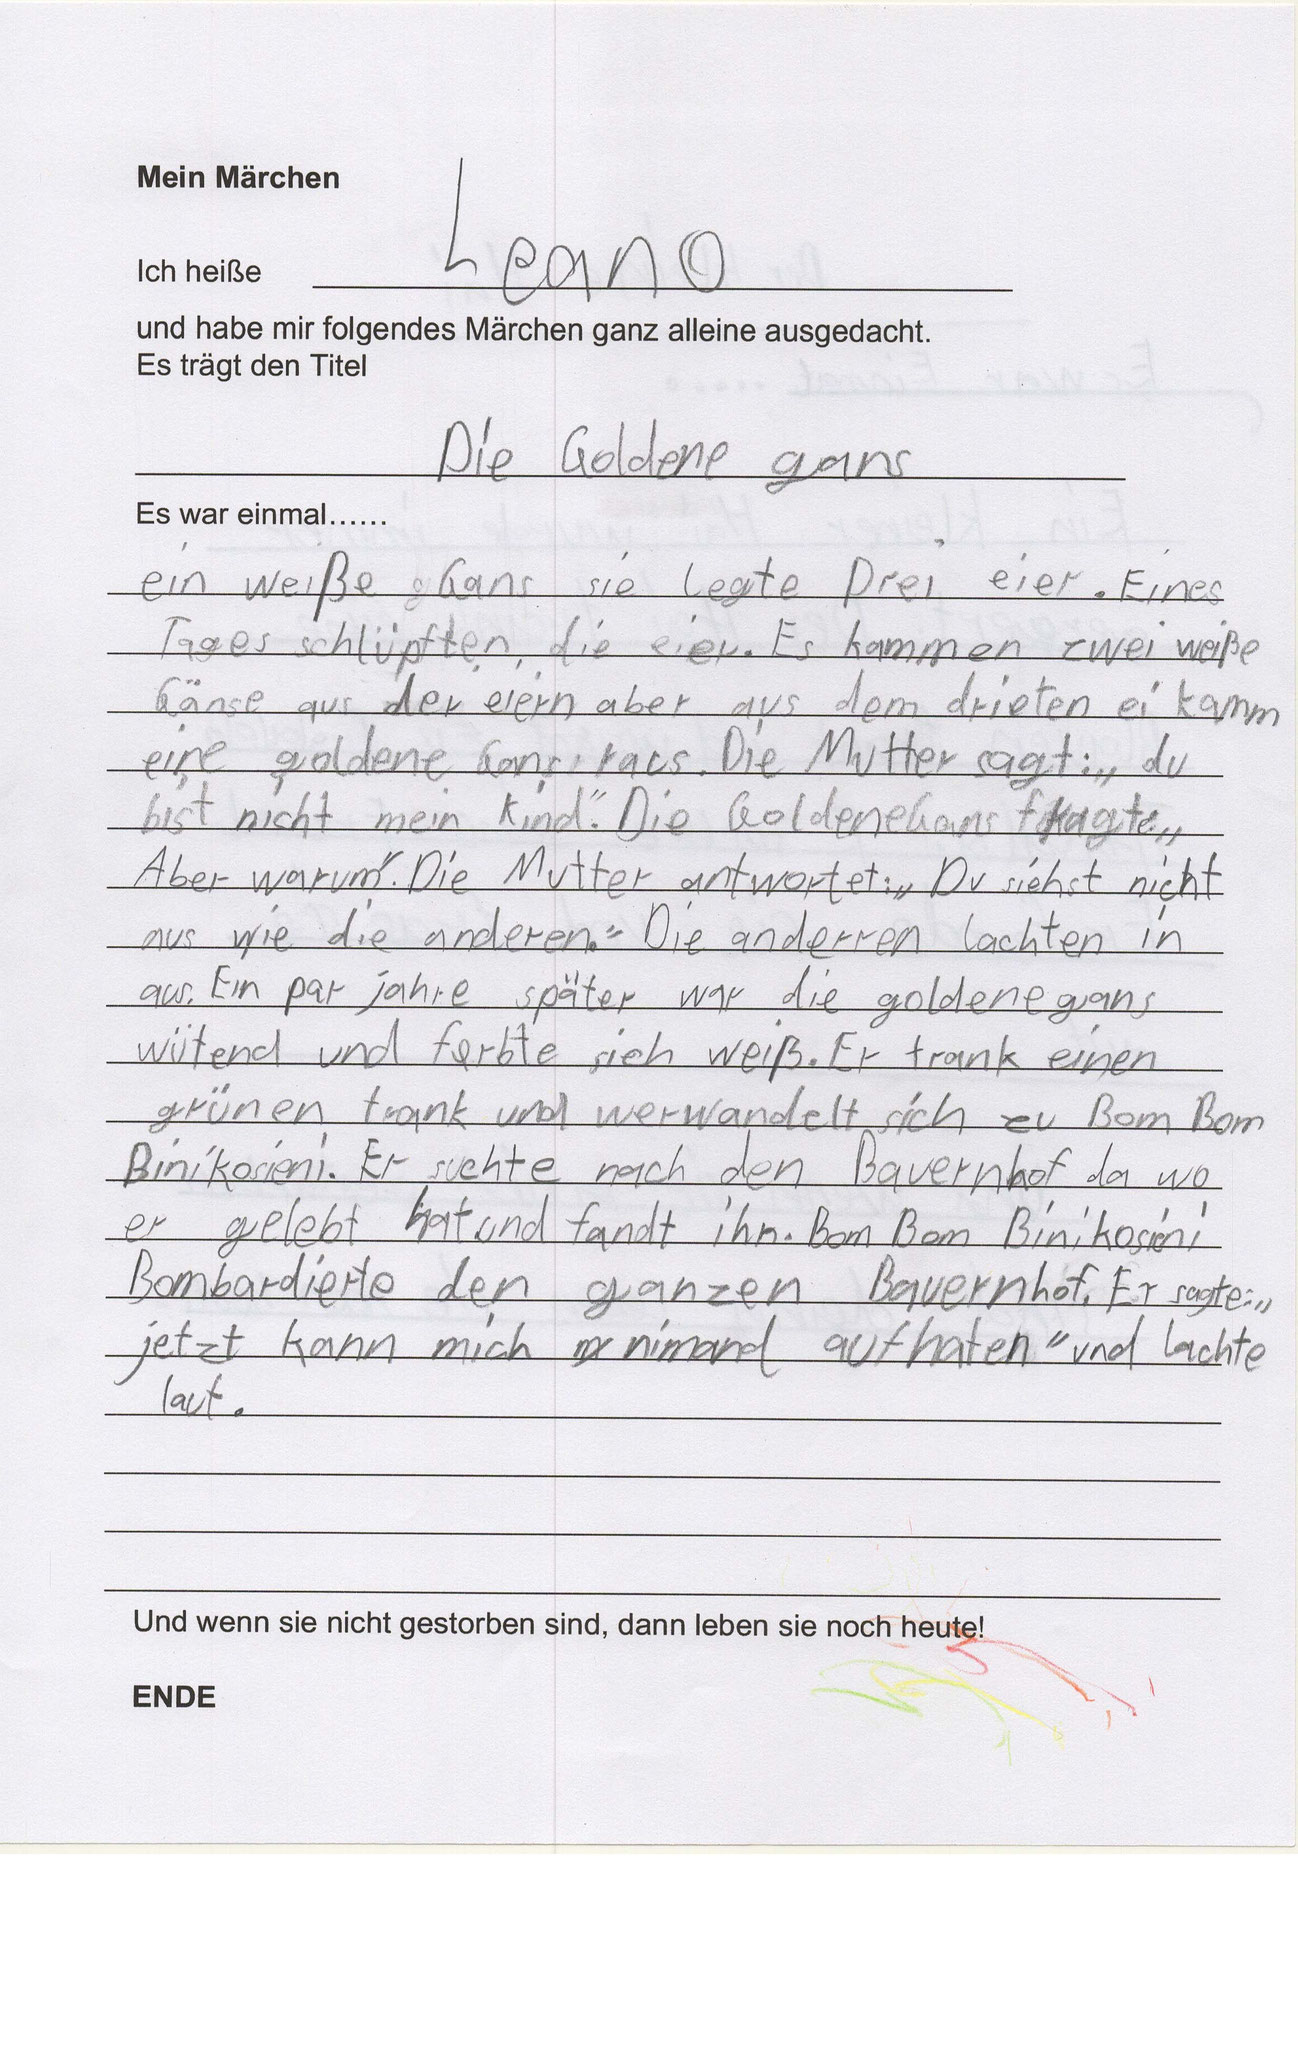 Mein Märchen
Ich heiße Leano
und habe mir folgendes Märchen ganz alleine ausgedacht.
Es trägt den Titel
Die Goldene gans
Es war einmal......
ein weiße Gans sie legte Drei eier. Eines
Tages schlüpften die eier. Es kammen zwei weiße
Gänse aus der eiern aber aus dem drieten ei kamm
eine goldene Gans raus. Die Mutter sagt:„ du
bist nicht mein Kind“. Die GoldeneGans fragte:„
Aber warum“. Die Mutter antwortet:„ Du siehst nicht
aus wie die anderen.“ Die anderren lachten in
aus. Ein par jahre später war die goldene gans
wütend und ferbte sich weiß. Er trank einen
grünen trank und werwandelt sich zu Bom Bom
Binikosieni. Er suchte nach den Bauernhof da wo
er gelebt hat und fandt ihn. Bom Bom Binikosieni
Bombardierte den ganzen Bauernhof. Er sagte:„
jetzt kann mich nimand aufhaten“ und lachte
laut.
Und wenn sie nicht gestorben sind, dann leben sie noch heute!
ENDE